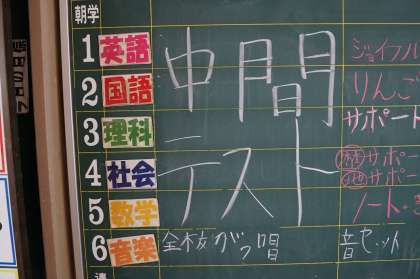 朝学
1 英語 中間 ジョイフル
2 国語 りんご
3 理科 テスト サポート
4 社会 歴 サポ
地 サポ
5 数学 ノート・
6 音楽 全校がっ唱 音セット
連